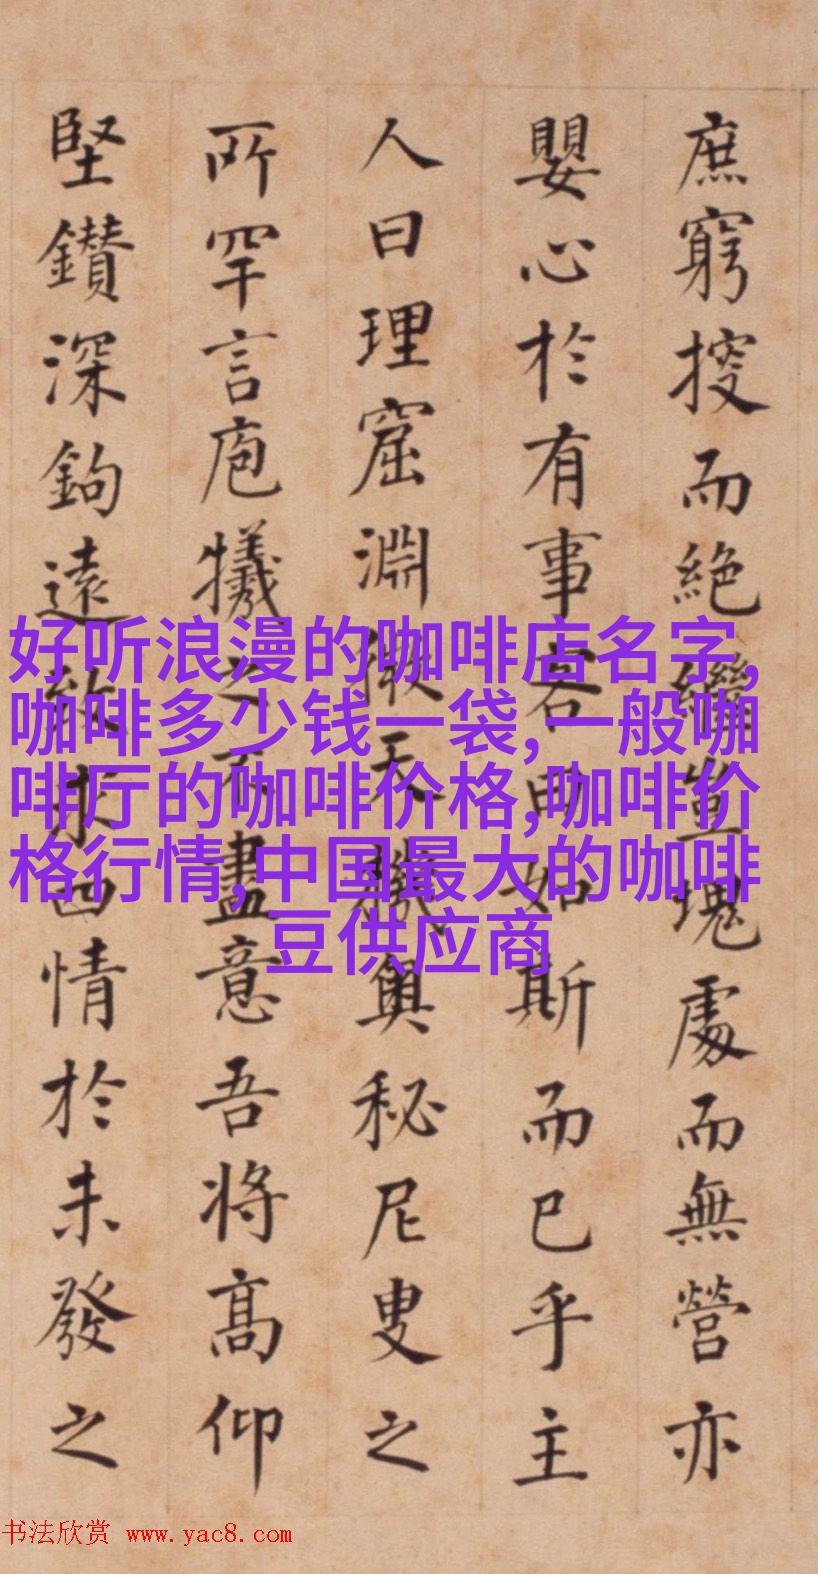 庶窮搜而絶豈塊處而無營亦
嬰心於有事客曰如斯而已乎主
人曰理窟淵微天機奥秘尼叟之
所罕言庖犧之不盡意吾将髙仰
堅鑚深鉤遠致求四情於未發之
好听浪漫的咖啡店名字,
咖啡多少钱一袋,一般咖
啡厅的咖啡价格,咖啡价
格行情,中国最大的咖啡
豆供应商
书法欣赏 www.yac8.com